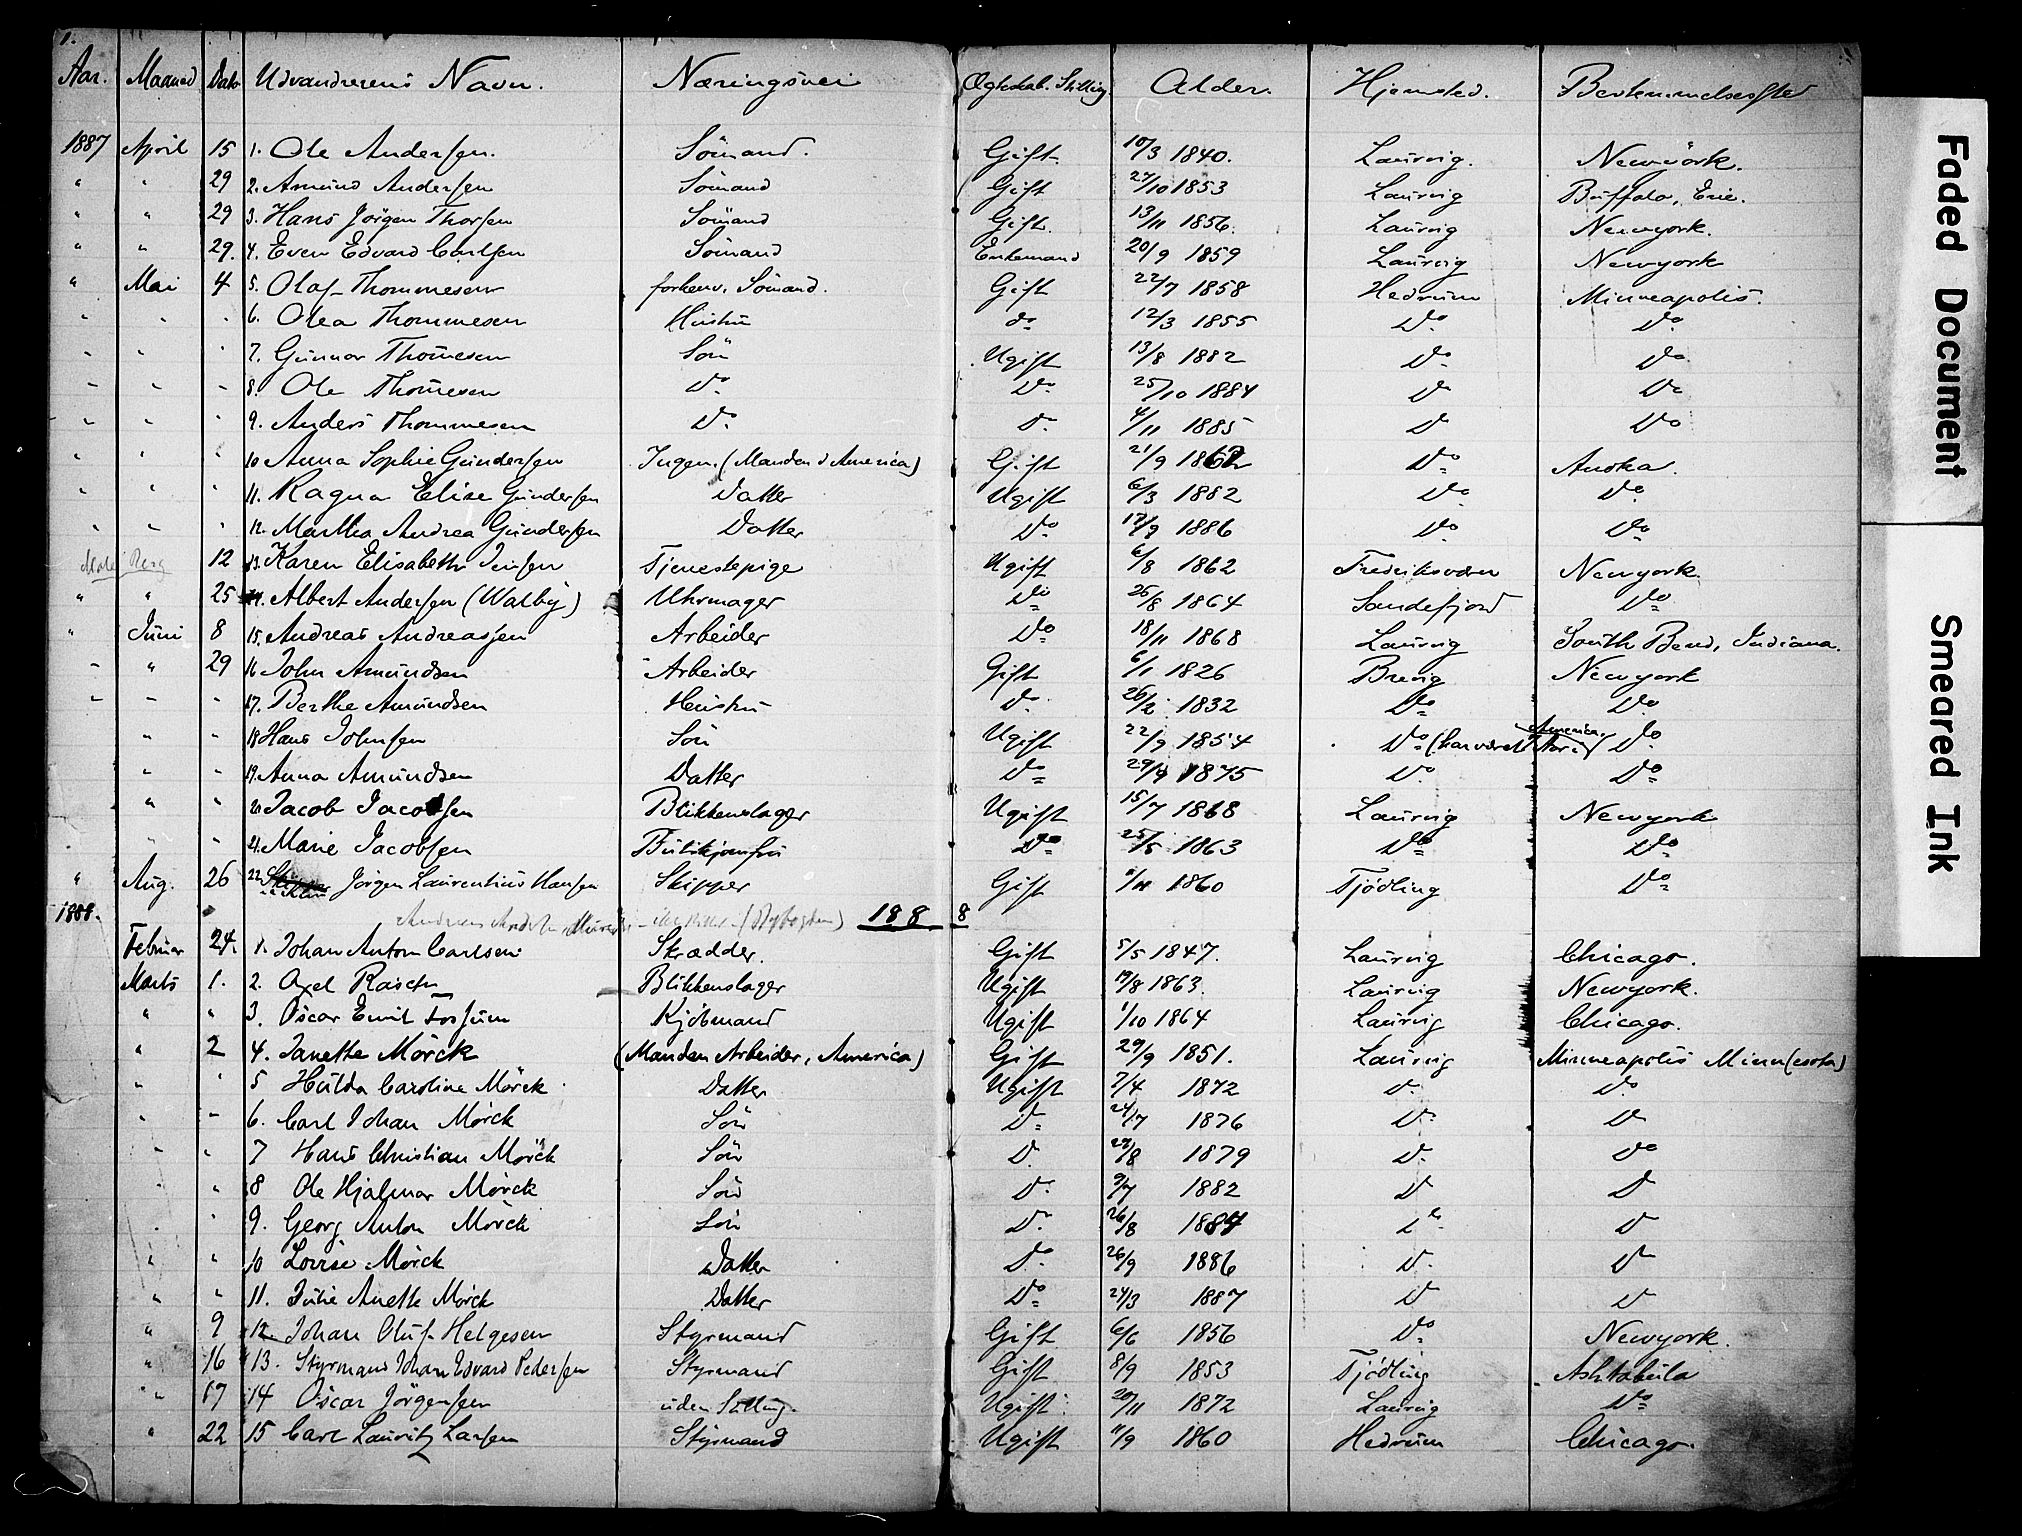 1.
Aar. Maaned Dato Udvandrerens Navn. Næringsvei Ægteskab. Stilling. Alder. Hjemsted. Bestemmelsessted
1887 April 15 1. Ole Andersen. Sömand. Gift. 10/3 1840. Laurvig. Newyörk.
" " 29 2. Amund Andersen Sömand Gift 27/10 1853 Laurvig Buffalo, Erie.
" " 29 3. Hans Jörgen Thorsen Sömand Gift. 13/11 1856. Laurvig Newyork.
" " 29. 4. Even Edvard Carlsen Sömand Enkemand 20/9 1859 Laurvig Newyork
" Mai 4 5. Olaf Thommesen forhenv. Sömand. Gift 22/7 1858 Hedrum Minneapolis.
" " " 6. Olea Thommesen Hustru do 12/3 1855 Do. Do.
" " " 7. Gunnar Thom̄esen Sön Ugift 13/8 1882 Do Do
" " " 8. Ole Thom̄esen Do Do 25/10 1884 Do Do
" " " 9. Anders Thommesen Do. Do. 4/11 1885 Do Do
" " " 10 Anna Sophie Gundersen Ingen. (Manden i America) Gift 21/9 1862 Do Anoka.
" " " 11. Ragna Elise Gundersen Datter Ugift 6/3 1882 Do Do.
" " " 12. Martha Andrea Gundersen Datter Do. 1886 Do. Do
12 13. Karen Elisabeth Jensen Tjenestepige Ugift 6/8 1862 Fredriksværn Newyork.
" " 25 14. Albert Andersen (Walby) Uhrmager Do 26/8 1864 Sandefjord Do
" Juni 8 15. Andreas Andreassen Arbeider Do 18/11 1868 Laurvig South Bend, Indiana.
" " 29 16 John Amundsen Arbeider Gift 6/1 1826 Brevig Newyork
" " " 17. Berthe Amundsen Hustru Do. 26/2 1832 Do Do.
" " 18 Hans Johnsen Sön Ugift 22/9 1854 Do (har været i America) Do.
" " 19. Anna Amundsen Datter Do 29/4 1875 Do. Do
" " 20 Jacob Jacobsen Blikkenslager Ugift 15/7 1868 Laurvig Newyork
" " 21. Marie Jacobsen Butikjomfru Do 25/5 1863 Do Do
" Aug. 26 22 Jörgen Laurentius Hansen Skipper Gift 1860 Tjödling Do
1888. 1888
Februar 24. 1. Johan Anton Carlsen Skrædder. Gift 5/5 1847. Laurvig Chicago.
Marts 1. 2. Axel Rasch Blikkenslager Ugift 1863. Laurvig Newyork.
" " 3. Oscar Emil Fossum Kjöbmand Ugift 1/10 1864 Laurvig Chicago.
" 2 4. Janette Mörck (Manden Arbeider, America) Gift 29/9 1851. Laurvig Minneapolis Minn(esota)
" " 5 Hulda Caroline Mörck Datter Ugift 7/4 1872 Do. Do.
" " 6. Carl Johan Mörck Sön Do 24/7 1876 Do Do
" " 7 Hans Christian Mörck Sön Do. 1879 Do. Do
" " 8 Ole Hjalmar Mörck Sön Do. 9/7 1882 Do Do
" " 9. Georg Anton Mörck Sön Do. 26/8 1884 Do Do
" " 10 Lovise Mörck Datter Do. 26/9 1886 Do. Do
" " 11. Julie Anette Mörck Datter Do 24/3 1887 Do Do
" 9 12 Johan Oluf Helgesen Styrmand Gift 6/6 1856 Do. Newyork.
" 16 13. Styrmand Johan Edvard Pedersen Styrmand Gift 8/9 1853 Tjödling Ashtabula
" 17 14 Oscar Jörgensen uden Stilling. Ugift 20/11 1872 Laurvig Do
" 22 15 Carl Lauritz Larsen Styrmand Ugift 11/9 1860 Hedrum Chicago.
Faded Document
Smeared Ink